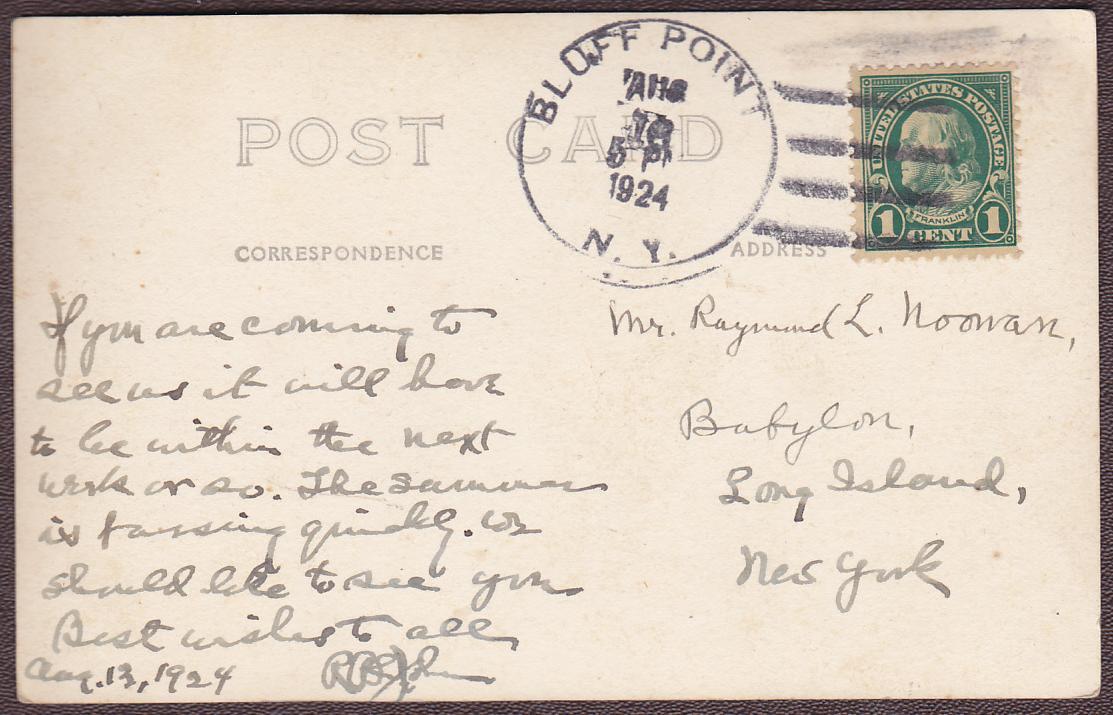 POST CARD
BLUFF POINT
AUG
5 PM
1924
N. Y.
UNITED STATES POSTAGE
FRANKLIN
1 CENT 1
CORRESPONDENCE
ADDRESS
If you are coming to
see us it will have
to be within the next
week or so. The summer
is passing quickly. We
should like to see you
Best wishes to all
Aug. 13, 1924
Mr. Raymond L. Noonan,
Babylon,
Long Island,
New York